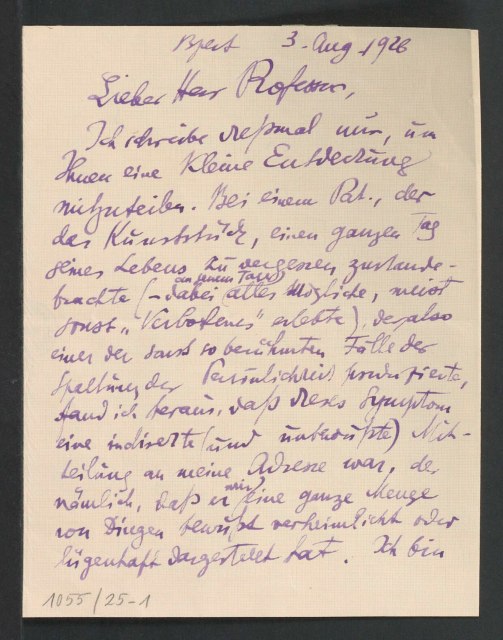 Bpest 3. Aug 1926
Lieber Herr Professor,
Ich schreibe diesmal nur, um
Ihnen eine kleine Entdeckung
mitzuteilen. Bei einem Pat., der
das Kunststück, einen ganzen Tag
seines Lebens zu vergessen, zustande-
brachte (– dabei an jenem Tage alles Mögliche, meist
sonst „Verbotenes" erlebte), der also
einen der sonst so berühmten Fälle der
Spaltung der Persönlichkeit produzierte,
fand ich heraus, daß dieses Symptom
eine indirekte (und unbewußte) Mit-
teilung an meine Adresse war, der
nämlich, daß er mir eine ganze Menge
von Dingen bewußt verheimlicht oder
lügenhaft dargestellt hat. Ich bin
1055/25-1